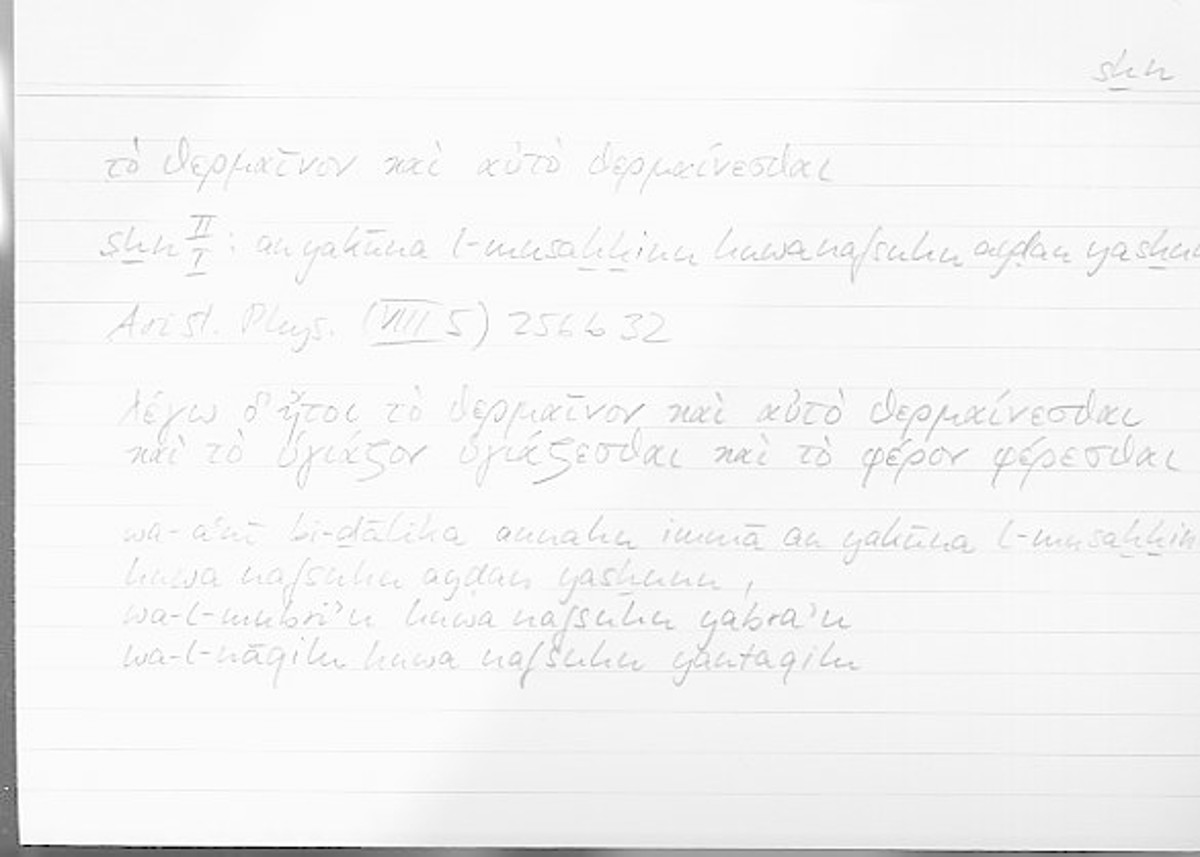 sẖn
τὸ θερμαῖνον καὶ αὐτὸ θερμαίνεσθαι
sẖn II/I : an yakūna l-musaẖẖinu huwa nafsuhu ayḍan yasẖunu
Arist. Phys. (VIII 5) 256b32
λέγω δ' ἤτοι τὸ θερμαῖνον καὶ αὐτὸ θερμαίνεσθαι
καὶ τὸ ὑγιάζον ὑγιάζεσθαι καὶ τὸ φέρον φέρεσθαι
wa-aʿnī bi-ḏālika annahu immā an yakūna l-musaẖẖin
huwa nafsuhu ayḍan yasẖunu,
wa-l-mubriʾu huwa nafsuhu yabraʾu
wa-l-nāqilu huwa nafsuhu yantaqilu